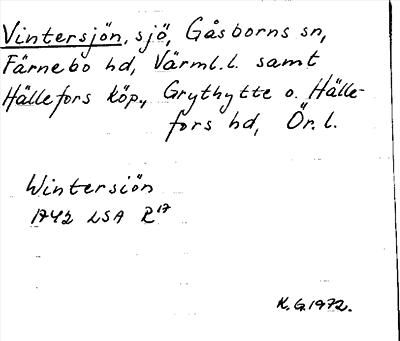 Vintersjön, sjö, Gåsborns sn,
Färnebo hd, Värml.l. samt
Hällefors köp., Grythytte o. Hälle-
fors hd, Ör. l.
Wintersiön
1742 LSA R17
K.G. 1972.